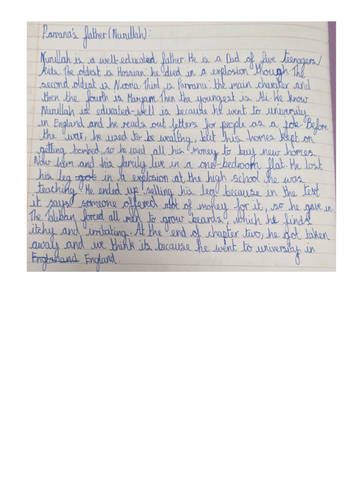 Parvana's father (Nurullah):
Nurullah is a well-educated father. He is a Dad of five teenagers/
kids. The oldest is Hossain he died in a explosion though. The
second oldest is Nooria. Third is Parvana the main charater and
then the fourth is Maryam. Then the youngest is Ali. We know
Nurullah is educated-well is because he went to university
in England and he reads out letters for people as a job. Before
the war, he used to be wealthy, but his homes kept on
getting bombed so he used all his money to buy new homes.
Now him and his family live in a one-bedroom flat. He lost
his leg got in a explosion at the high school he was
teaching. He ended up selling his leg because in the text
it says someone offered alot of money for it, so he gave in.
The Taliban forced all men to grow beards, which he finds
itchy and irritating. At the end of chapter two, he got taken
away and we think its because he went to university in
England.